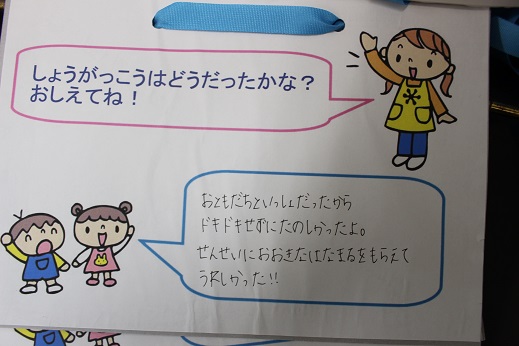 しょうがっこうはどうだったかな？
おしえてね！
おともだちといっしょだったから
ドキドキせずにたのしかったよ。
せんせいにおおきなはなまるをもらえて
うれしかった!!